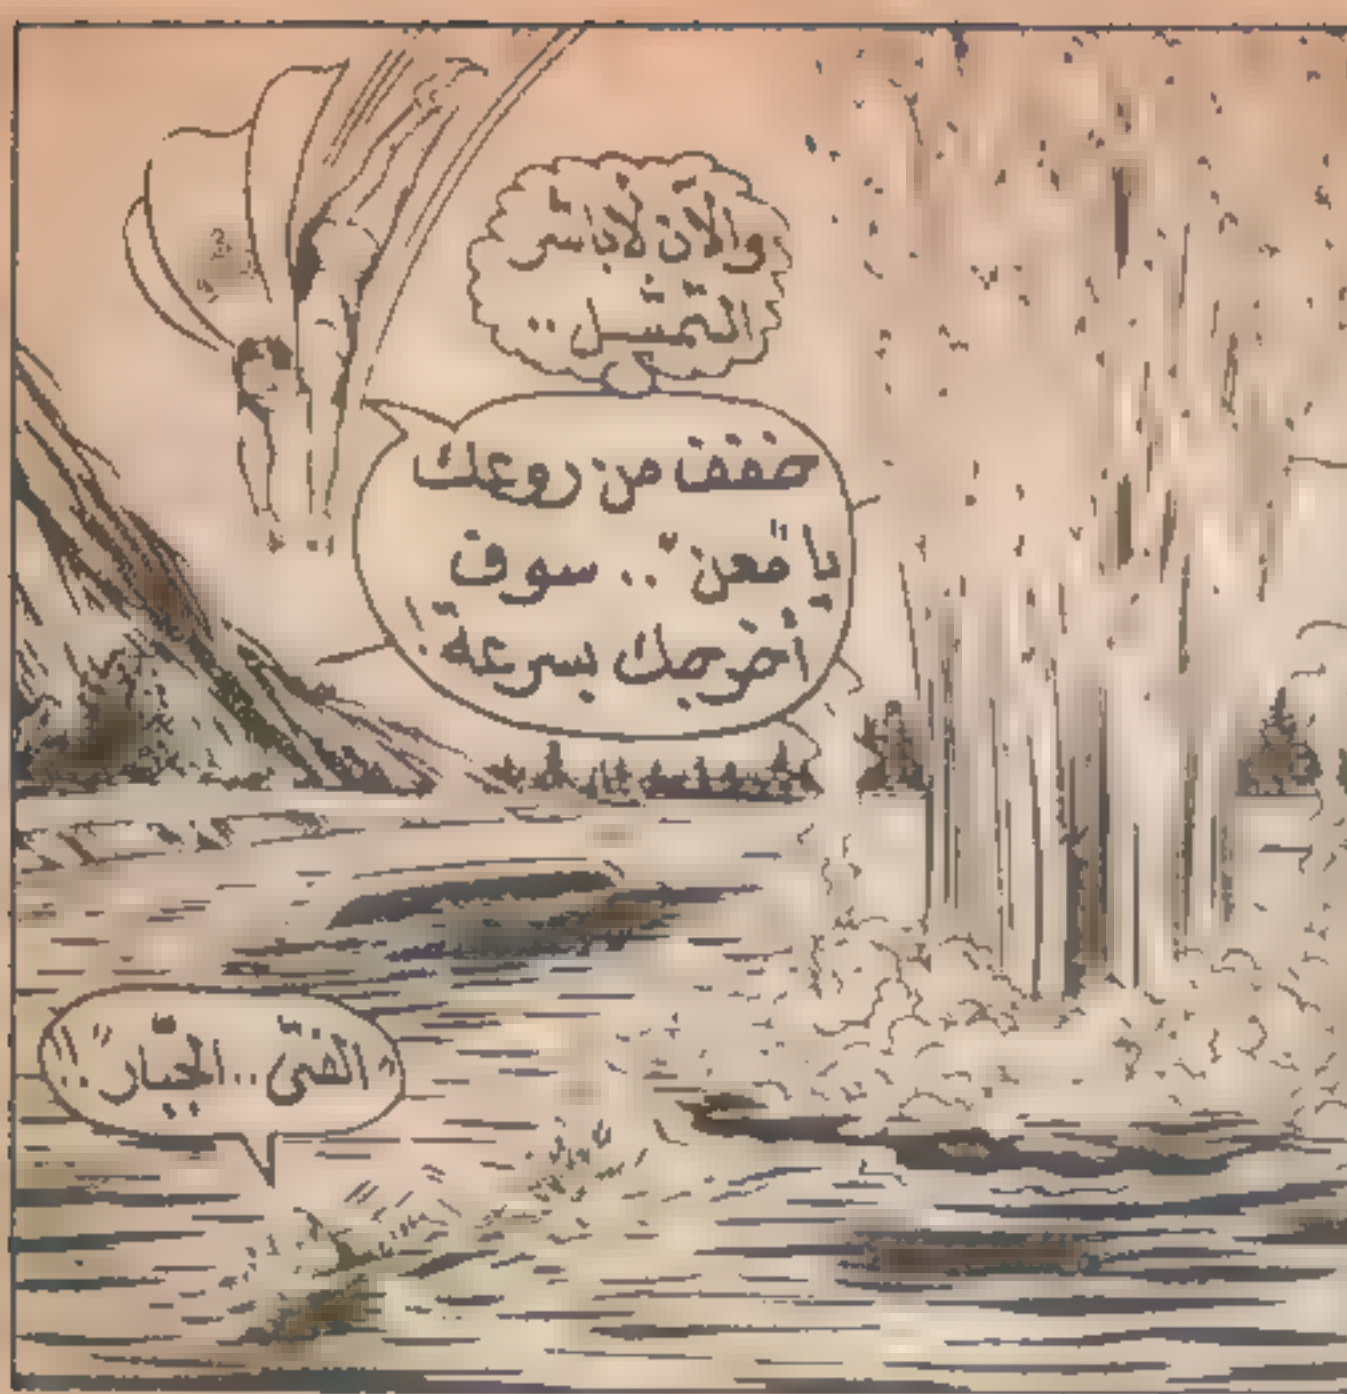 والآن لأباشر
التمثيل ..
خفف من روعك
يا "معن" .. سوف
أخرجك بسرعة !
"الفتى .. الجبار" !!